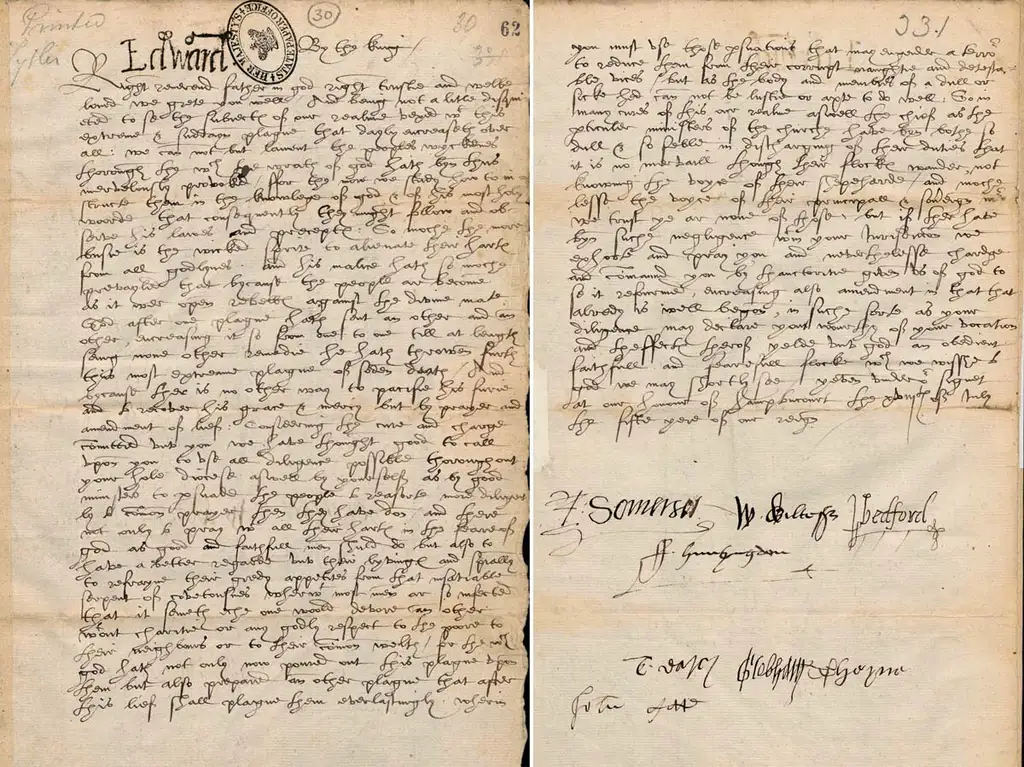 Printed
Tytler
30
30
62
HER MAJESTY'S STATE PAPER OFFICE
Edward
By the king
Right reverend father in god right trustie and welbe
loved we grete you well. And being not a litle disquie
ted to se the subiects of our realme vexed wt this
extreme & suddayn plague that dayly encreaseth over
all: we can not but lament the peoples wyckednes
thorough the wch the wrath of god hath byn thus
mervelously provoked. ffor the more we study how to in
structe them in the knowlege of god & of his most holy
woorde that consequently they might follow and ob
serve his lawes and precepts: So moche the more
busie is the wicked sprite to alienate their harts
from all godlynes. And his malice hath so moche
prevayled that bycause the people are become
as it wer open rebells against the divine maie
God after one plague hath sent an other and an
other, encreasing it so from one to one till at length
seing none other remedie he hath throwen furth
this most extreme plague of soden deth. And
bycause ther is no other way to pacifie his furie
and to recover his grace & mercy but by prayer and
amendment of lief. Considering the cure and charge
committed unto you we have thought good to call
upon you to use all diligence possible thoroughout
your hole diocese aswell by yourself as by good
ministres to psuade the people to resorte more diligently
to comon prayer then they have don and there
not only to pray wt all their harts in the feare of
god as good and faithfull men shuld do but also to
have a better regarde unto their lyvings and specially
to refrayne their gredy appetites from that insatiable
serpent of covetousnes wherwt most men are so infected
that it semeth eche one wold devore an other
wtout charitie or any godly respect to the poore to
their neighbours or to their comon welth, for the wch
god hath not only now powred out this plague upon
them but also prepared an other plague that after
this lief shall plague them everlastingly. wherin
331
you must use those psuations that may engender a terror
to reduce them from their corrupt naughtie and detesta
ble vices. But as the body and membres of a dull or
sicke hed can not be lustie or apte to do well: So in
many cures of this our realme aswell the chief as the
pticuler ministers of the churche have byn bothe so
dull & so feble in discharging of their duties that
it is no mervaill though their flocks wander, not
knowing the voyce of their shepeharde and moche
lesse the voyce of their principall & sovereign mr
We trust ye are none of those: but if ther have
byn suche negligence wtin your Jurisdiction we
exhorte and pray you and neverthelesse chardge
and comaund you by thauctoritie given us of god to
se it refourmed, encreasing also amendment in that that
already is well begon, in suche sorte as your
diligence may declare your worthie of your vocation
and theffects therof yelde unto god an obedient
faithfull and fearefull flocke wch we wisshe to
god we may shortly see. yeven under or signet
at our honour of hampton court the xviijth of July
the fifte yere of our reign
E. Somerset
W. Wiltesh
J. Bedford
F. huntyngdon
T. Darcy
G. Cobham
T. Cheyne
John Gate